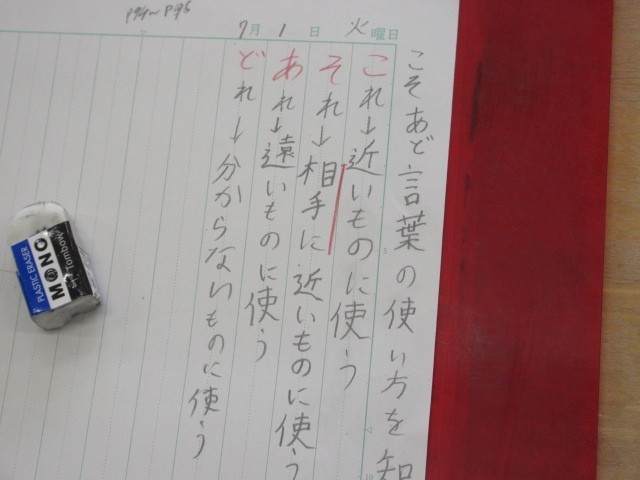 P94~P95
7月1日火曜日
こそあど言葉の使い方を知
これ→近いものに使う
それ→相手に近いものに使う
あれ→遠いものに使う
どれ→分からないものに使う
PLASTIC ERASER
MONO
Tombow